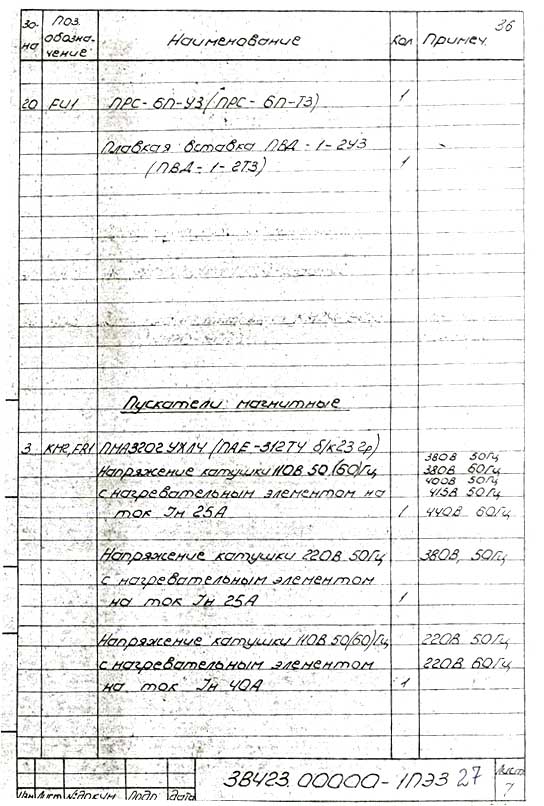 36
Зо-на Поз. обозна-чение Наименование Кол Примеч.
20 FU1 ПРС-6П-У3 (ПРС-6П-Т3) 1
Плавкая вставка ПВД-1-2У3
(ПВД-1-2Т3) 1
Пускатели магнитные
3 КМ2, FR1 ПМА3202УХЛ4 (ПАЕ-312Т4 б/к 23 гр)
380В 50Гц
Напряжение катушки 110В 50(60)Гц 380В 60Гц
400В 50Гц
с нагревательным элементом на 415В 50Гц
ток Iн 25А 1 440В 60Гц
Напряжение катушки 220В 50Гц 380В, 50Гц
с нагревательным элементом
на ток Iн 25А 1
Напряжение катушки 110В 50/60)Гц 220В 50Гц
с нагревательным элементом 220В 60Гц
на ток Iн 40А 1
3В423.00000-1ПЭ3 27 Лист
7
Изм Лист №докум. Подп. Дата